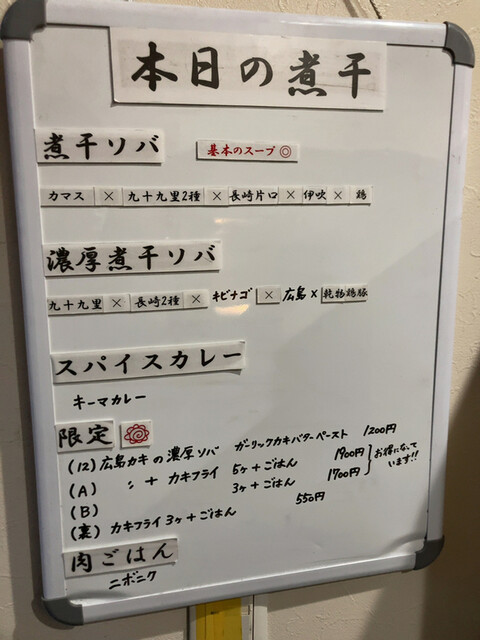 本日の煮干
煮干ソバ 基本のスープ◎
カマス × 九十九里2種 × 長崎片口 × 伊吹 × 鶏
濃厚煮干ソバ
九十九里 × 長崎2種 × キビナゴ × 広島 × 乾物鶏豚
スパイスカレー
キーマカレー
限定
(12) 広島カキの濃厚ソバ ガーリックカキバターペースト 1200円
(A) 〃 + カキフライ 5ヶ+ごはん 1900円
(B) 3ヶ+ごはん 1700円
お得になって
います!!
(裏) カキフライ3ヶ+ごはん 550円
肉ごはん
ニボニク